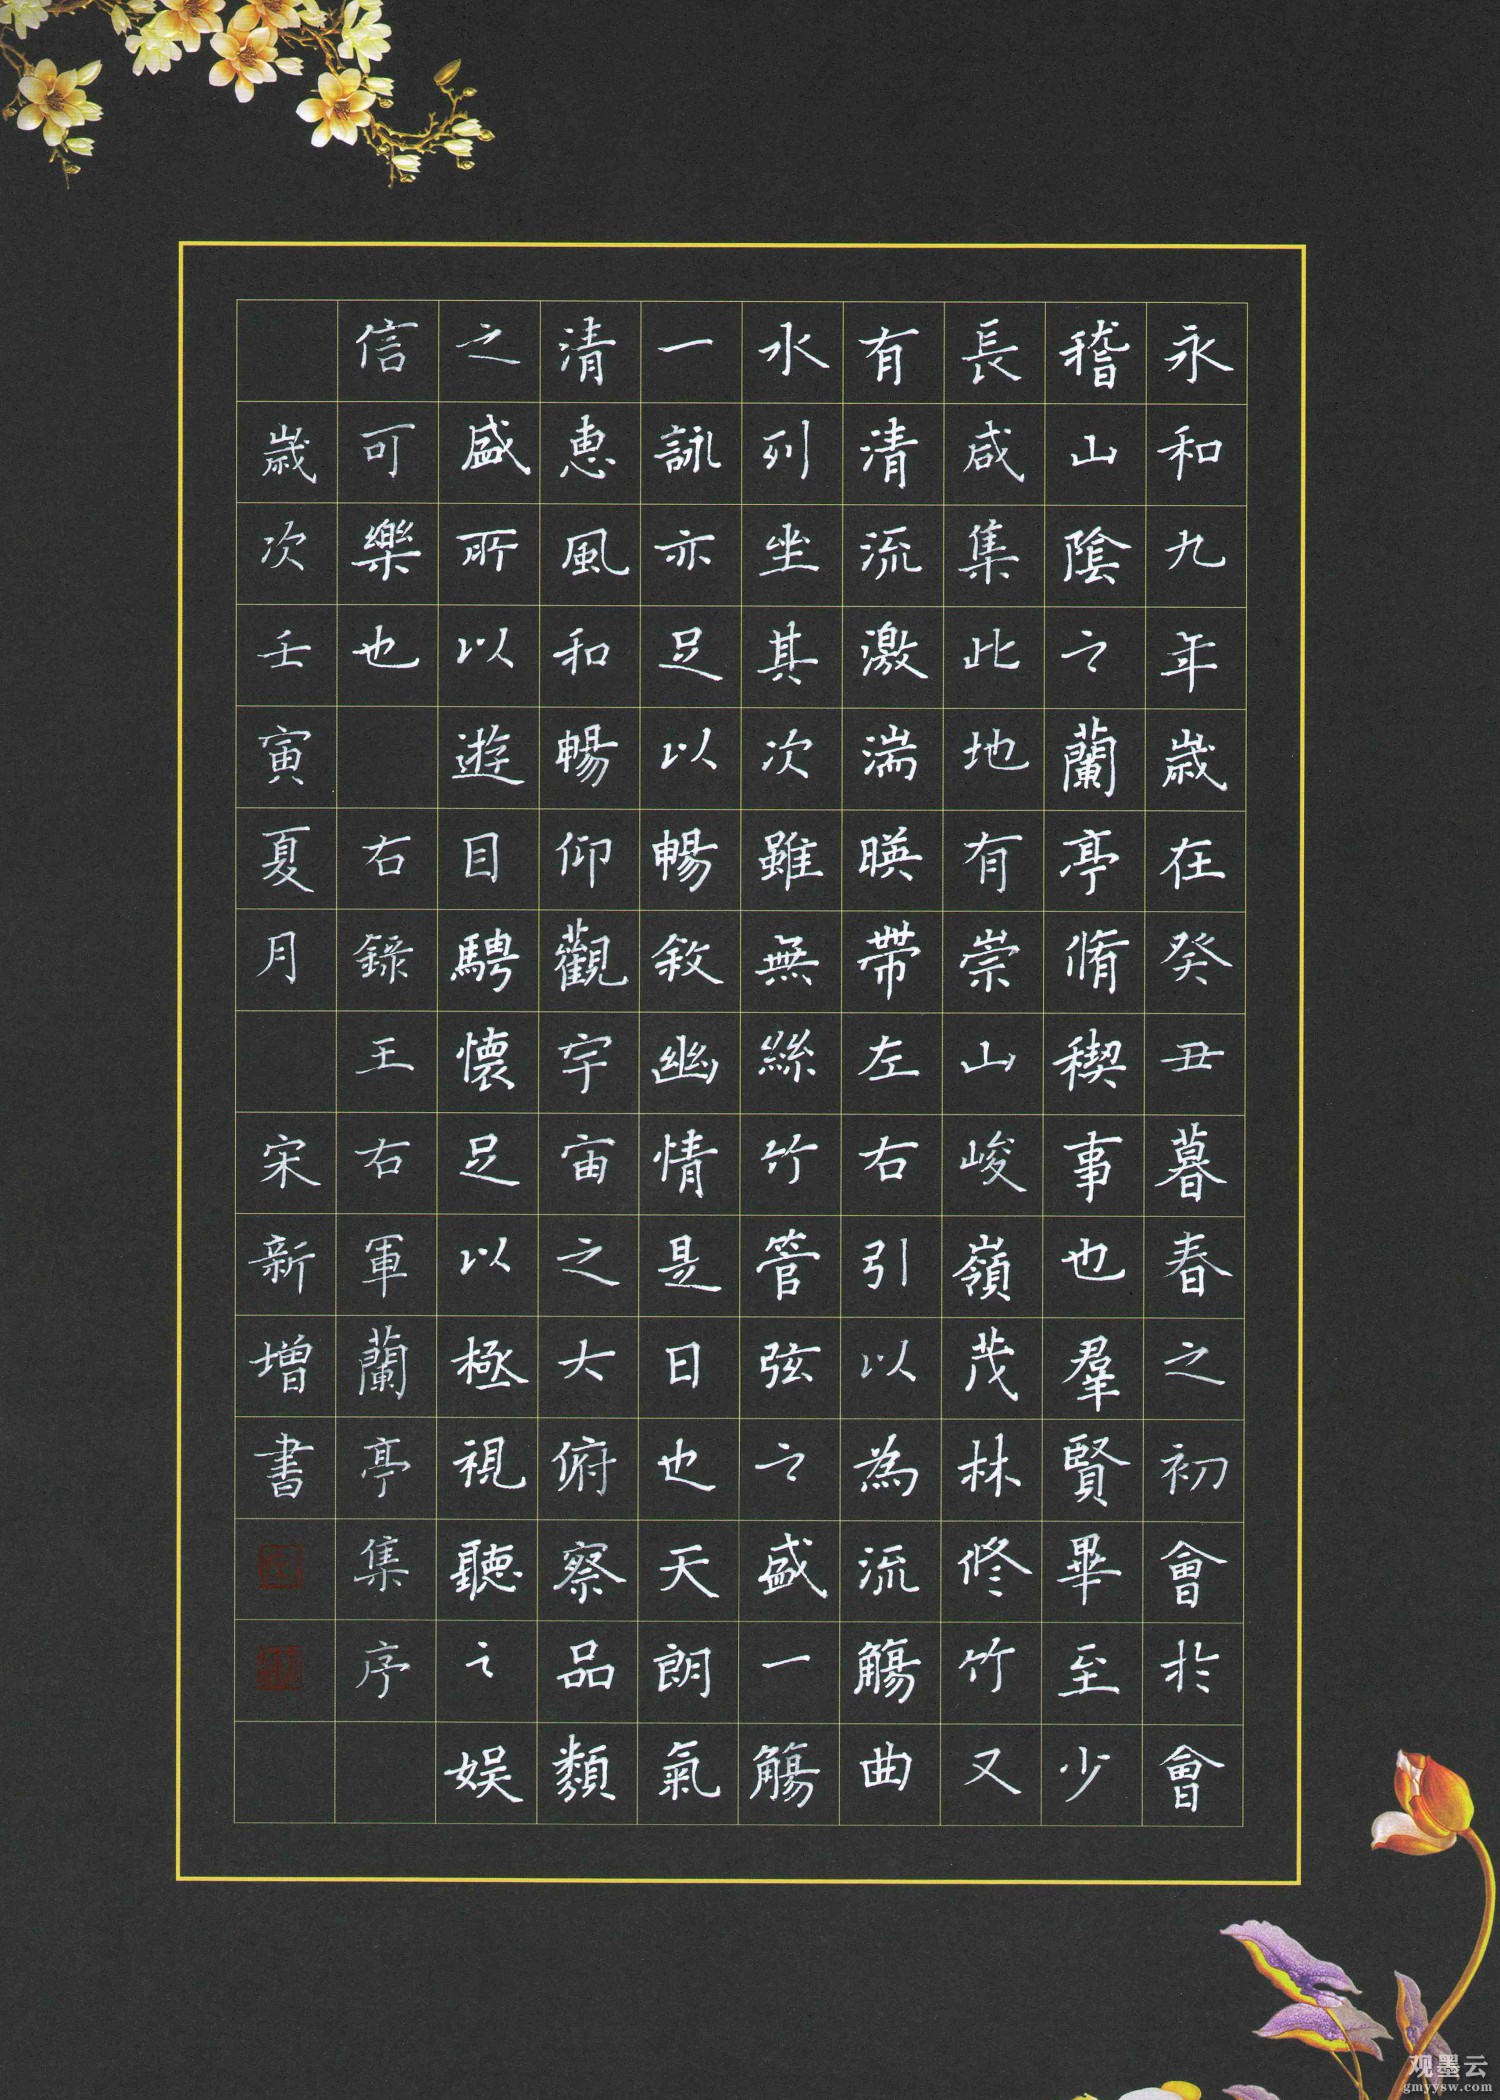 永和九年歲在癸丑暮春之初會於會
稽山陰之蘭亭脩稧事也羣賢畢至少
長咸集此地有崇山峻嶺茂林修竹又
有清流激湍暎帶左右引以為流觴曲
水列坐其次雖無絲竹管弦之盛一觴
一詠亦足以暢敘幽情是日也天朗氣
清惠風和暢仰觀宇宙之大俯察品類
之盛所以遊目騁懷足以極視聽之娛
信可樂也 右錄王右軍蘭亭集序
歲次壬寅夏月 宋新增書
观墨云
gmyysw.com